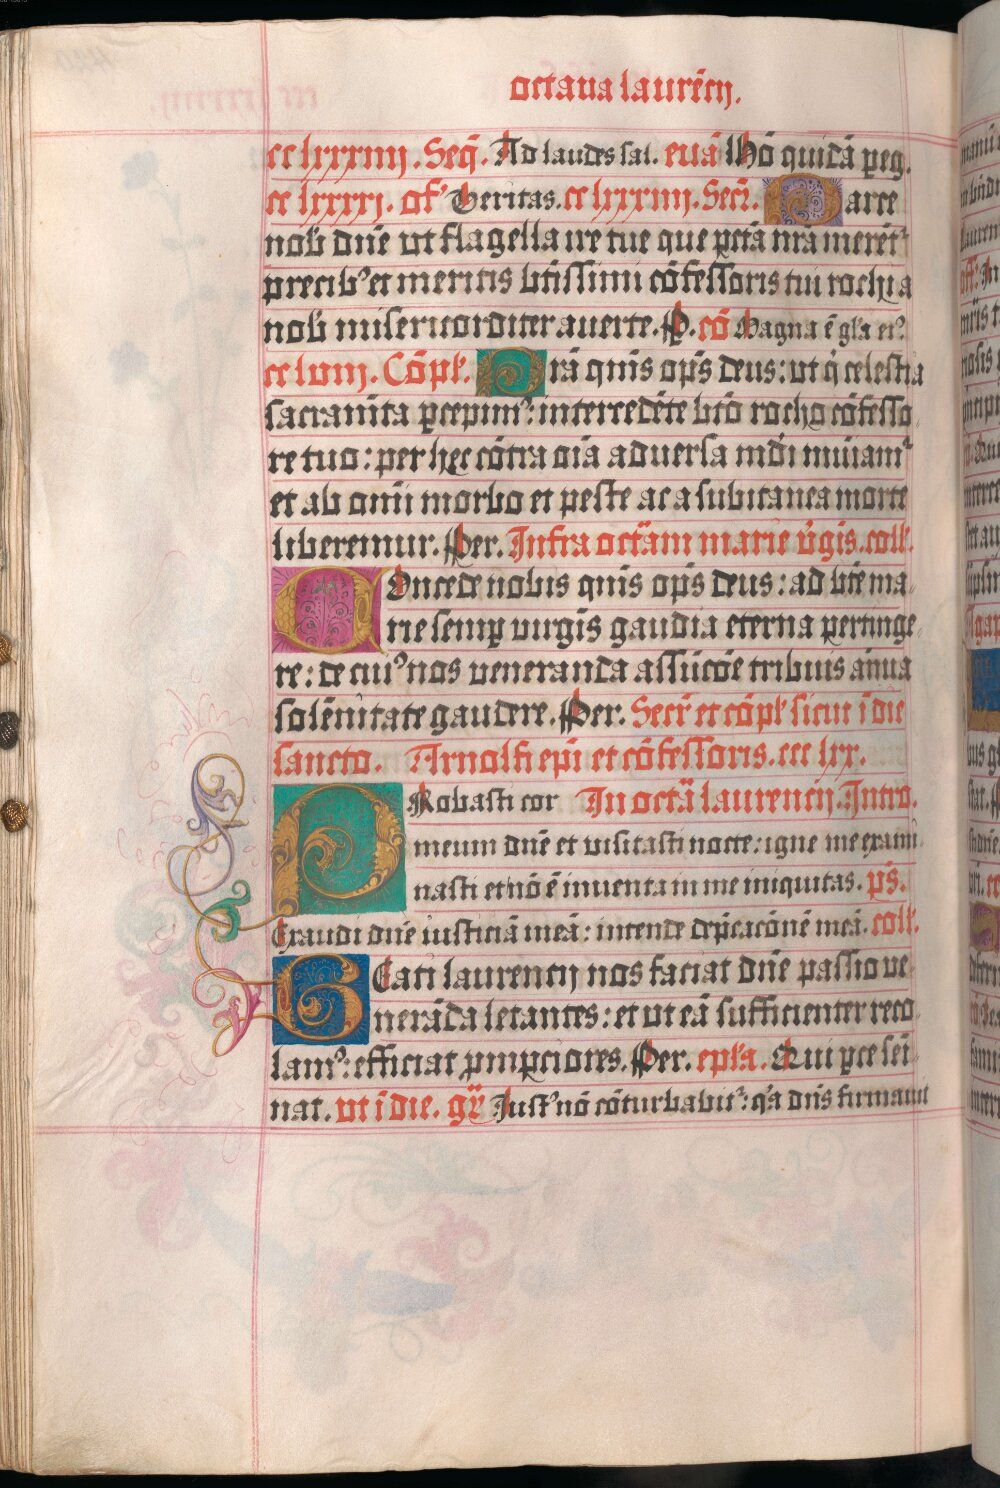 octaua laurēcij.
cc lxxxiiij. Seq̄. Ad laudes sal. euā Hō quidā peg.
cc lxxxxj. of' Veritas. cc lxxxiiij. Secr̄. Parce
nob̄ dn̄e ut flagella ire tue que pctā nr̄a merēt᷑
precib᷒ et meritis btīssimi cōfessoris tui rochi a
nob̄ misericorditer auerte. P. cō Magna ē gl'a ei᷒
cc lviij. Cōpl'. Orā quis op̄s deus: ut q̄ celestia
sacramēta pcepim᷒: intercedēte btō rocho cōfesso
re tuo: per hec cōtra oīa aduersa mdī muniam᷑
et ab omī morbo et peste ac a subitanea morte
liberemur. Per. Infra octāam marie v̄gis. coll'.
Concede nobis quis op̄s deus: ad bte ma-
rie semp virgis gaudia eterna pertinge-
re: de cui᷒ nos veneranda assūcōe tribuis ānua
solēnitate gaudere. Per. Secr̄ et cōpl' sicut ī die
sancto. Arnolfi ep̄i et cōfessoris. ccc lxx.
PRobasti cor In octā laurencij. Intro.
meum dn̄e et visitasti nocte: igne me exami
nasti et nō ē inuenta in me iniquitas. ps̄.
Exaudi dn̄e iusticiā meā: intende dep̄cacōnē meā. coll'.
BEati laurencij nos faciat dn̄e passio ve-
nerāda letantes: et ut eā sufficienter reco-
lam᷒: efficiat pmpciores. Per. epl'a. Qui pce sei-
nat. ut ī die. gr̄ Just᷒ nō cōturbabit᷑: q'a dn̄s firmauit